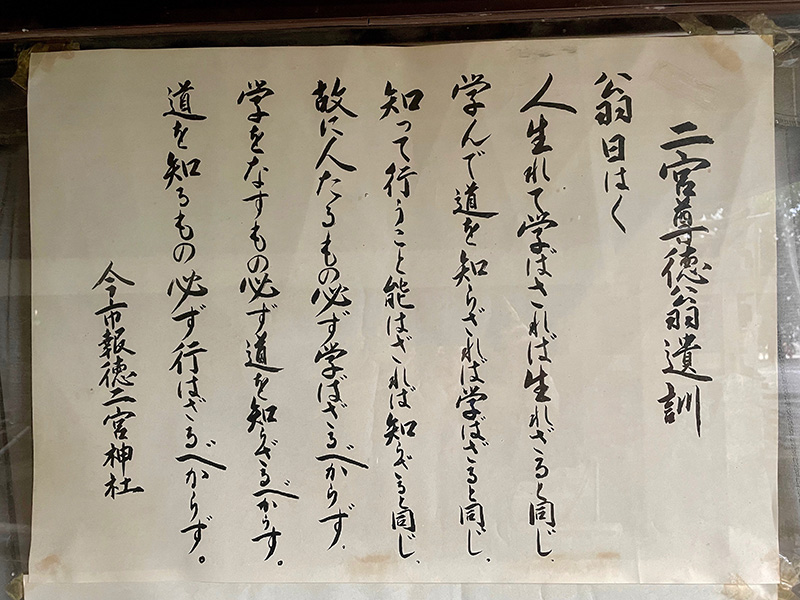 二宮尊徳翁遺訓
翁曰はく
人生れて学ばざれば生れざると同じ、
学んで道を知らざれば学ばざると同じ、
知って行うこと能はざれば知らざると同じ、
故に人たるもの必ず学ばざるべからず、
学をなすもの必ず道を知らざるべからず。
道を知るもの必ず行はざるべからず。
今市報徳二宮神社